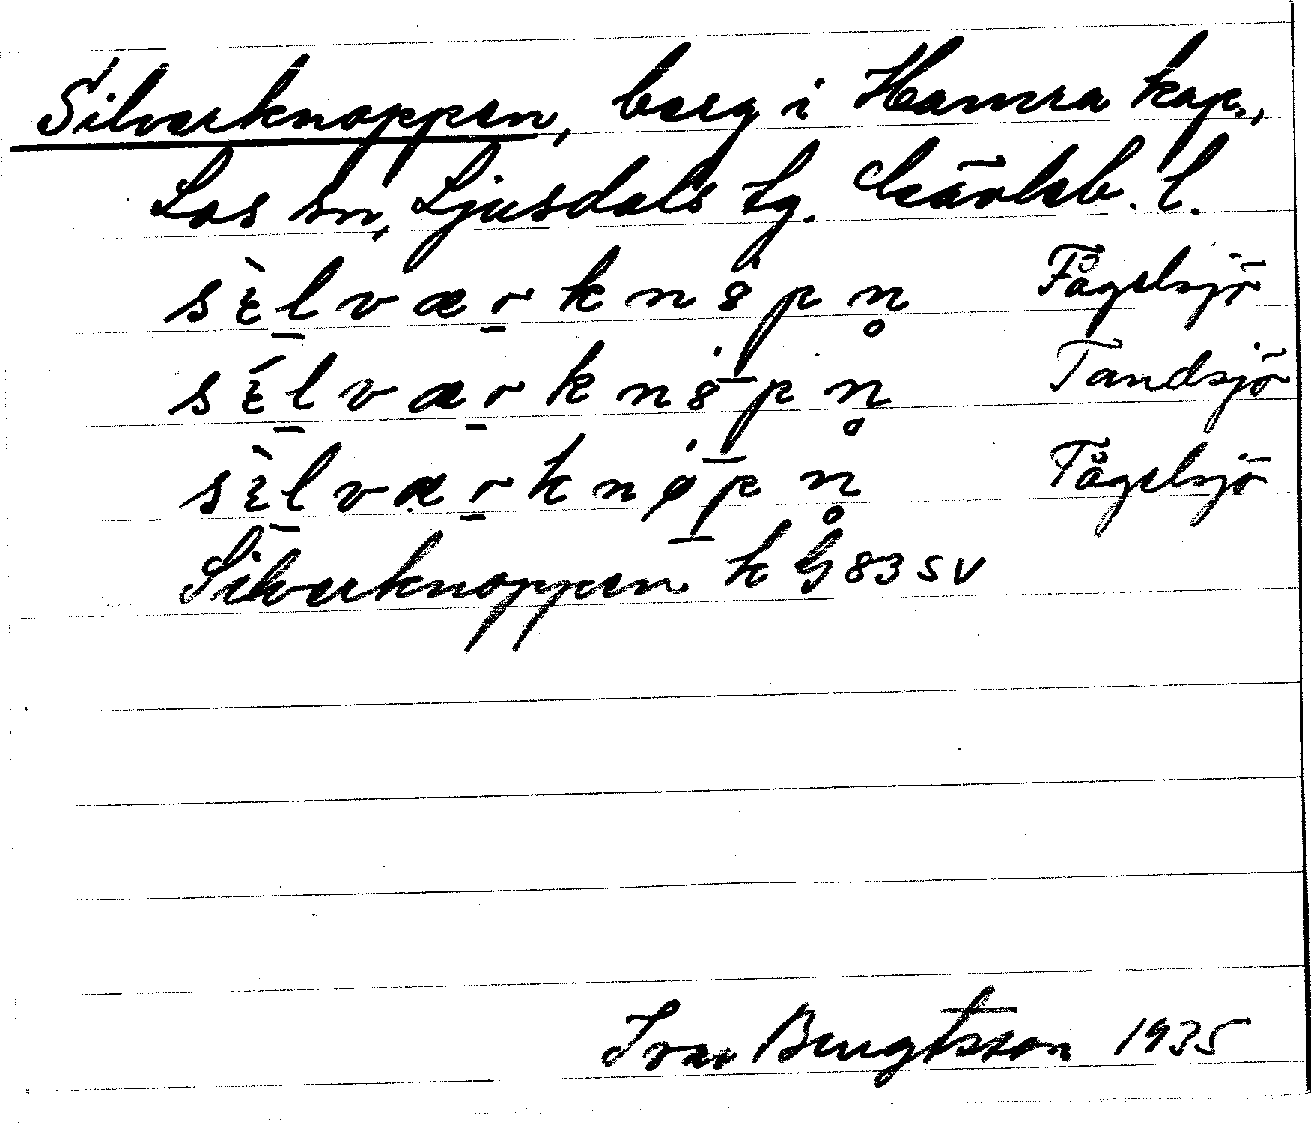 Silverknoppen, berg i Hamra kap.,
Los sn, Ljusdals tg. Gävleb. l.
sɛ̀l̠vær̠kn8̇pn̥ Fågelsjö
sɛ́l̠vær̠kn8̇p̠n̥ Tandsjö
sɛ̀l̠vær̠knø̇p̠n̥ Fågelsjö
Silverknoppen k G 83 SV
Ivar Bengtsson 1935